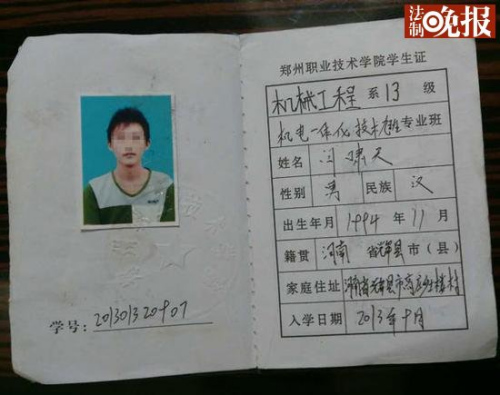 法制晚报
郑州职业技术学院学生证
机械工程 系 13 级
机电一体化技术 专业班
姓名 闫啸天
性别 男 民族 汉
出生年月 1994 年 11 月
籍贯 河南 省 辉县 市（县）
家庭住址 河南省辉县市高庄乡土楼村
入学日期 2013年9月
学号：201301320907